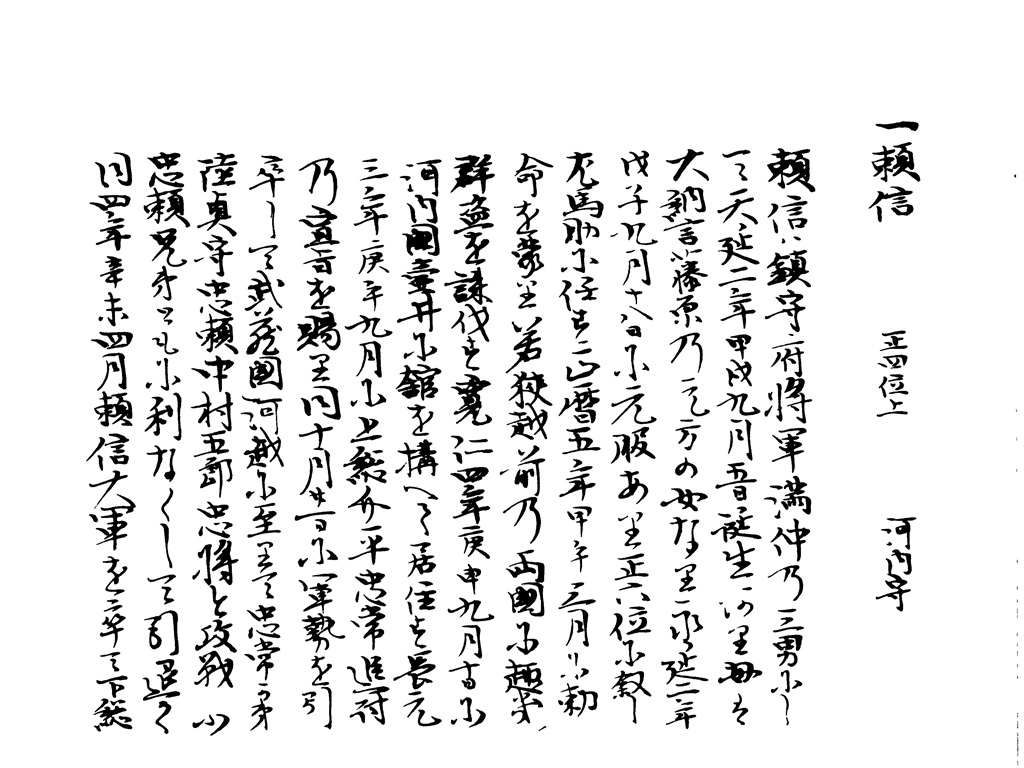 一頼信　正四位上　河内守
頼信ハ鎮守府将軍満仲乃三男にし
て天延二年甲戌九月五日誕生ありし母は
大納言藤原乃元方の女なり永延二年
戊子九月十八日に元服あり正六位に叙し
左馬助に任す正暦五年甲午三月に勅
命を蒙り若狭越前乃両国に趣き
群盗を誅伐す寛仁四年庚申九月十日に
河内国壷井に舘を構へて居住す長元
三年庚午九月に上総介平忠常追討
乃宣旨を賜り同十月廿一日に軍勢を引
卒して武蔵国河越に至りて忠常か弟
陸奥守忠頼中村五郎忠将と攻戦ふ
忠頼兄弟ともに利なくして引退く
同四年辛未四月頼信大軍を卒て下総